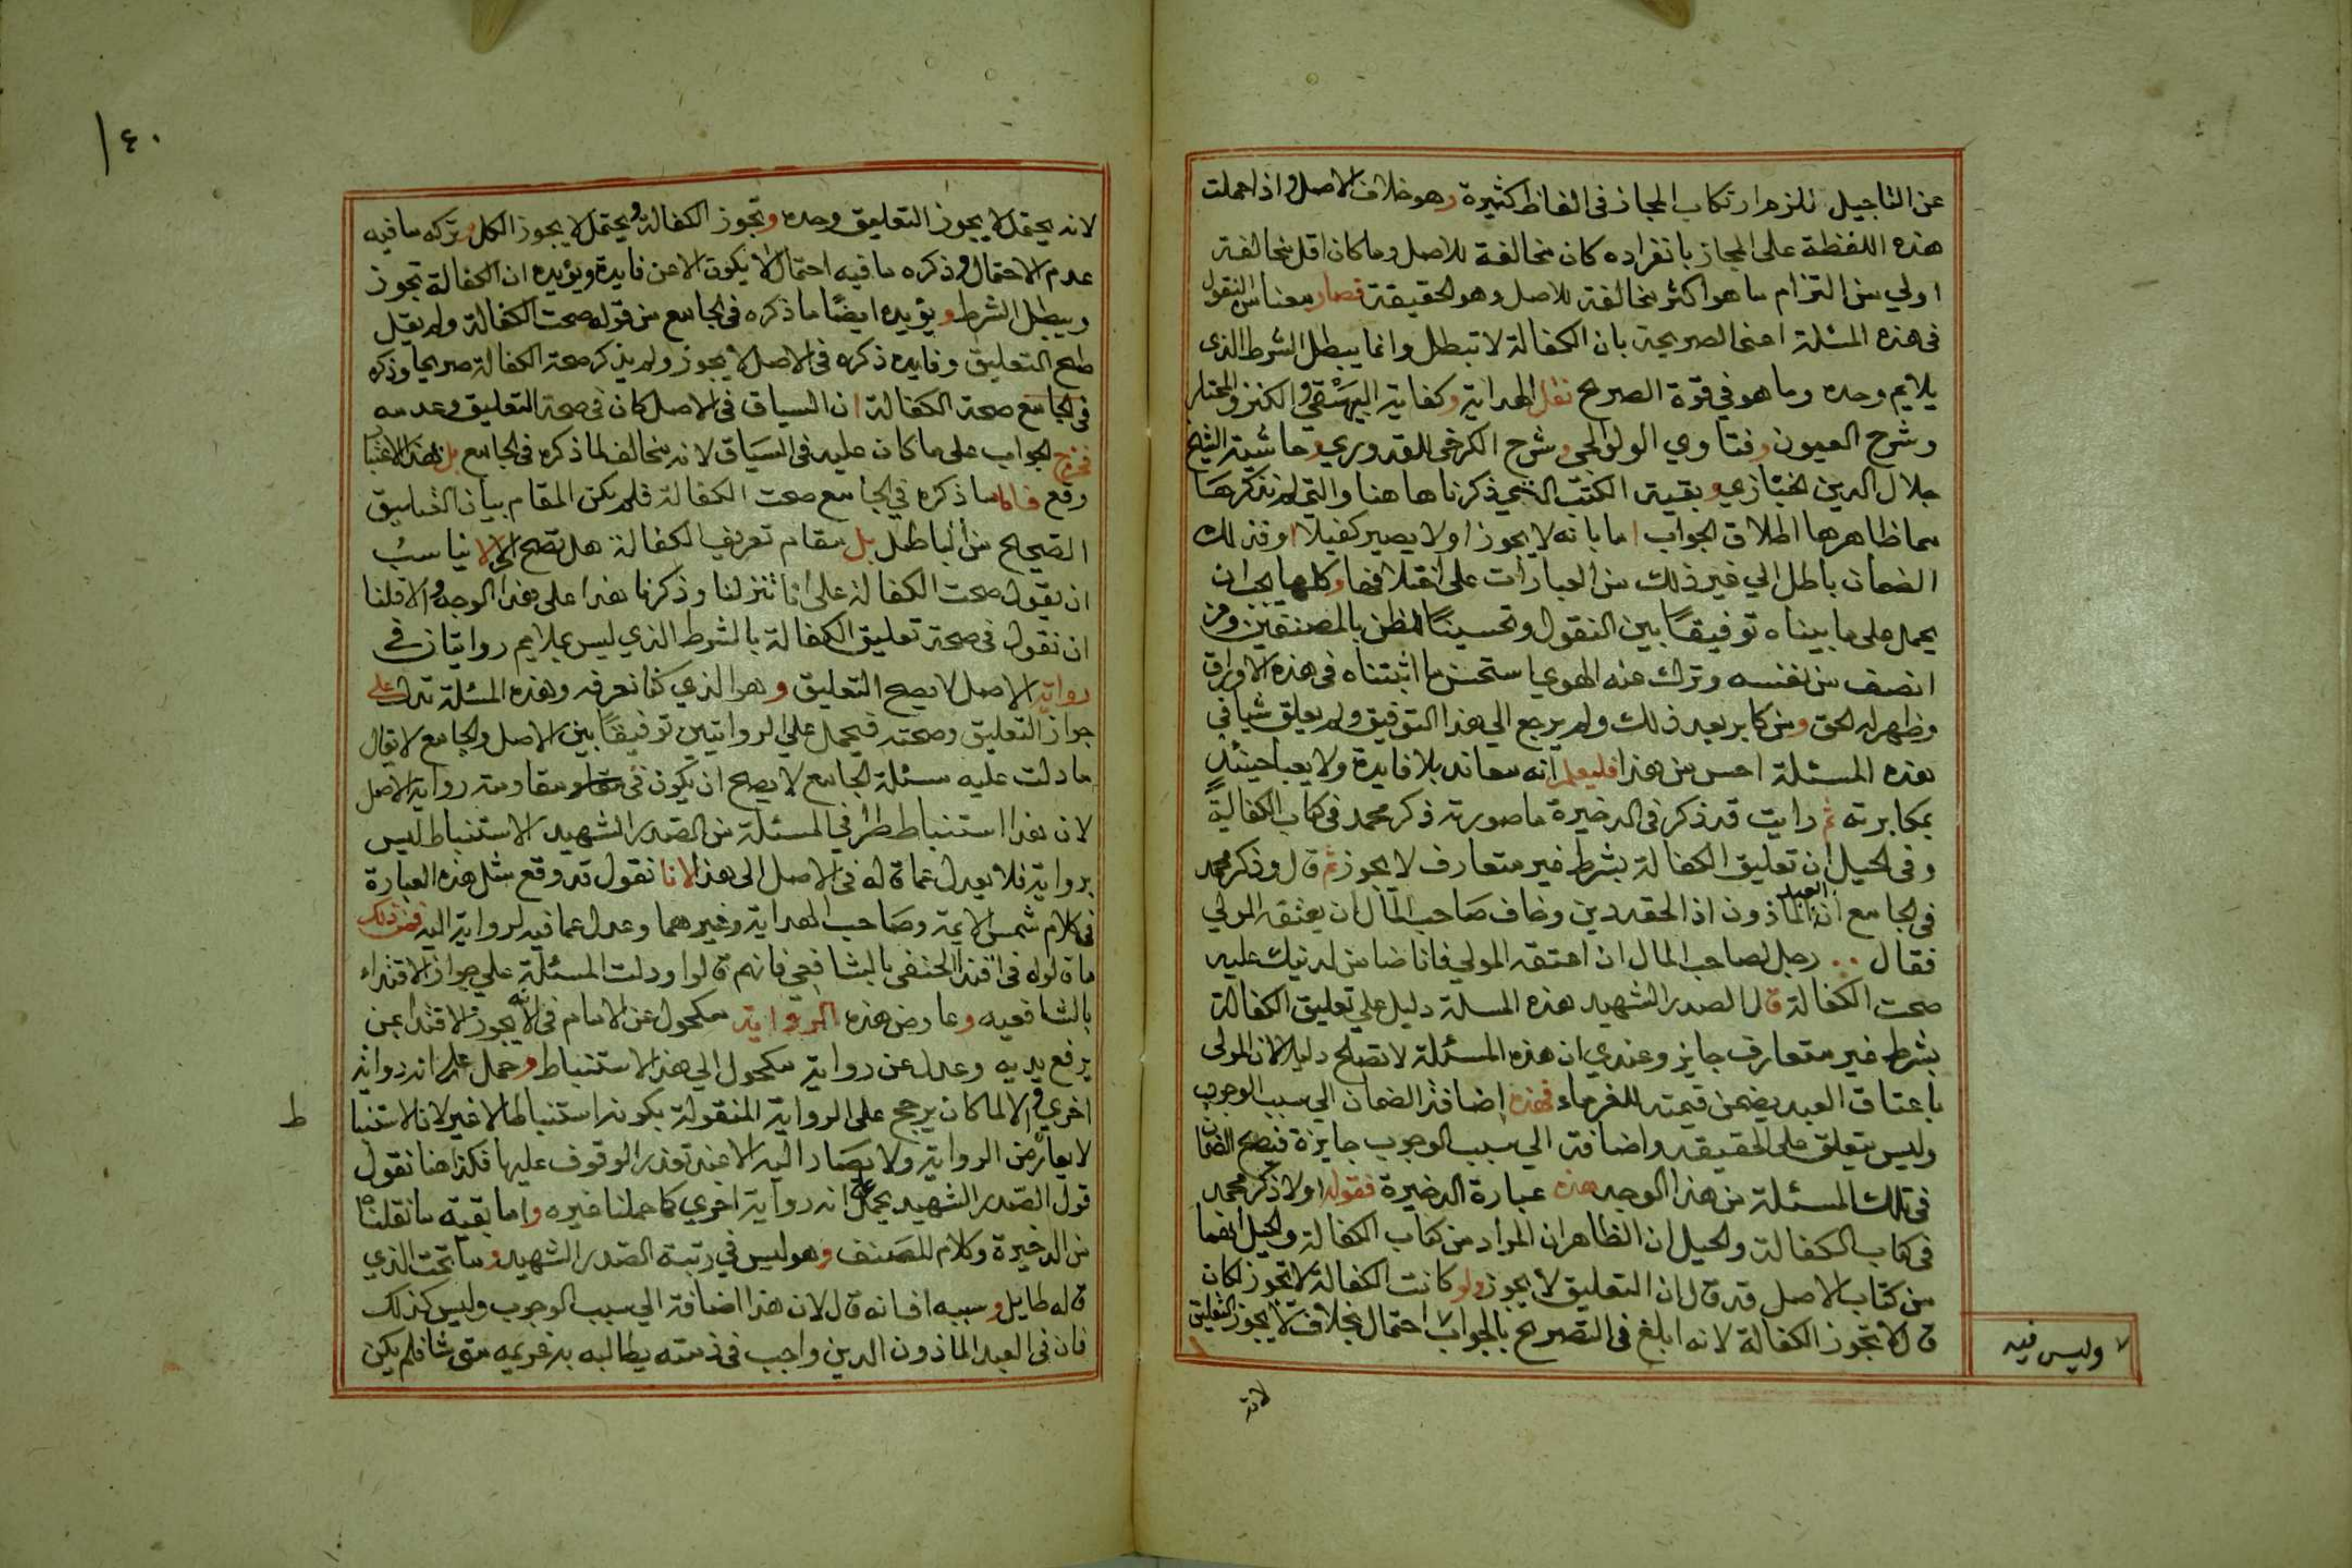 عن التاجيل نلزم ارتكاب المجاز فى الفاظ كثيرة وهو خلاف الاصل واذا حملت
هذه اللفظة على المجاز بانفراده كان مخالفة للاصل وما كان اقل مخالفة
اولي من التزام ما هو اكثر مخالفة للاصل وهو الحقيقة فصار معنا من النقول
فى هذه المسئلة اعنى الصريحة بان الكفالة لا تبطل وانما يبطل الشرط الذى
يلايم وحده وما هو في قوة الصريح نقل الهداية وكفاية البيهقي والكنز والمختار
وشرح العيون وفتاوي الولوالجي وشرح الكرخى للقدوري وحاشية الشيخ
جلال الدين الخبازي وبقية الكتب التي ذكرناها هنا والتي لم نذكرها
مما ظاهرها اطلاق الجواب اما بانه لا يجوز او لا يصير كفيلا او فذلك
الضمان باطل الي غير ذلك من العبارات على اختلافها وكلها يجب ان
يحمل على ما بيناه توفيقًا بين النقول وتحسينًا للظن بالمصنفين ومن
انصف من نفسه وترك عنه الهوي استحسن ما اثبتناه فى هذه الاوراق
وظهر له الحق ومن كابر بعد ذلك ولم يرجع الي هذا التوفيق ولم يعلق شيا في
هذه المسئلة احسن من هذا فليعلم انه معاند بلا فايدة ولا يعبا حينئذٍ
بمكابرته ثم رايت قد ذكر فى الذخيرة ما صورته ذكر محمد فى كتاب الكفالة
وفى الحيل ان تعليق الكفالة بشرط غير متعارف لا يجوز ثم قال وذكر محمد
فى الجامع ان العبد الماذون اذا لحقه دين وخاف صاحب المال ان يعتقه المولي
فقال .. رجل لصاحب المال ان اعتقه المولي فانا ضامن لدينك عليه
صحت الكفالة قال الصدر الشهيد هذه المسلة دليل علي تعليق الكفالة
بشرط غير متعارف جايز وعندي ان هذه المسئلة لا تصلح دليلا لان المولى
باعتاق العبد يضمن قيمته للغرماء فهذه اضافة الضمان الي سبب الوجوب
وليس بتعلق على الحقيقه واضافته الي سبب الوجوب جايزة فتصح الضمان
فى تلك المسئلة من هذا الوجه هذه عبارة الذخيرة فقوله اولا ذكر محمد
فى كتاب الكفالة والحيل ان الظاهر ان المراد من كتاب الكفالة والحيل انهما
من كتاب الاصل قد قال ان التعليق لا يجوز ولو كانت الكفالة لا تجوز لكان
قال لا تجوز الكفالة لانه ابلغ فى التصريح بالجواب احتمال بخلاف لا يجوز التعليق
لا وليس فيه
لانه
١٤٠
لانه يحتمل لا يجوز التعليق وحده وتجوز الكفالة ويحتمل لا يجوز الكل وتركه ما فيه
عدم الاحتمال وذكره ما فيه احتمال لا يكون الا عن فايدة ويؤيده ان الكفالة تجوز
ويبطل الشرط ويؤيده ايضًا ما ذكره فى الجامع من قوله صحت الكفالة ولم يقل
صح التعليق وفايده ذكره فى الاصل لا يجوز ولم يذكر صحة الكفالة صريحا وذكره
فى الجامع صحة الكفالة ان السياق فى الاصل كان فى صحة التعليق وعدمه
فخرج الجواب على ما كان عليه فى السياق لانه مخالف لما ذكره فى الجامع بل هذا الاعتبار
وقع فاما ما ذكره في الجامع صحت الكفالة فلم يكن المقام بيان التعليق
الصحيح من الباطل بل مقام تعريف الكفالة هل تصح ام لا لا يناسب
ان يقول صحت الكفالة على انا تنزلنا وذكرنا هذا على هذا الوجه والا قلنا
ان نقول فى صحة تعليق الكفالة بالشرط الذي ليس بملايم روايتان في
رواية الاصل لا يصح التعليق وهو الذي كنا نعرفه وهذه المسئلة تدل على
جواز التعليق وصحته فيحمل علي الروايتين توفيقًا بين الاصل والجامع لا يقال
ما دلت عليه مسئلة الجامع لا يصح ان يكون فى مقاومته رواية الاصل
لان هذا استنباط طرا في المسئلة من الصدر الشهيد الاستنباط ليس
برواية فلا يعدل عما قاله فى الاصل الى هذا لانا نقول قد وقع مثل هذه العبارة
فى كلام شمس الايمة وصاحب الهداية وغيرهما وعدل عما فيه لرواية اليه فمن ذلك
ما قالوله فى اقتدا الحنفي بالشافعي فانهم قالوا ودلت المسئلة علي جواز الاقتداء
بالشافعيه وعارض هذه الرواية مكحول عن الامام فى انه لا يجوز الاقتدا بمن
يرفع يديه وعدل عن رواية مكحول الي هذا الاستنباط وحمل على انه رواية
اخري والا لما كان يرجح على الرواية المنقولة بكونه استنباطا لا غير لان الاستنبا
ط
لا يعارض الرواية ولا يصار اليه الا عند تعذر الوقوف عليها فكذا هنا نقول
قول الصدر الشهيد يحمل على انه رواية اخري كما حملنا غيره واما بقية ما نقلناه
من الذخيرة وكلام للمصنف وهو ليس في رتبة الصدر الشهيد وما تحت الذي
قاله طايل وسببه انه قال لان هذا اضافة الي سبب الوجوب وليس كذلك
فان فى العبد الماذون الدين واجب فى ذمته يطالبه به غريمه متى شا فلم يكن